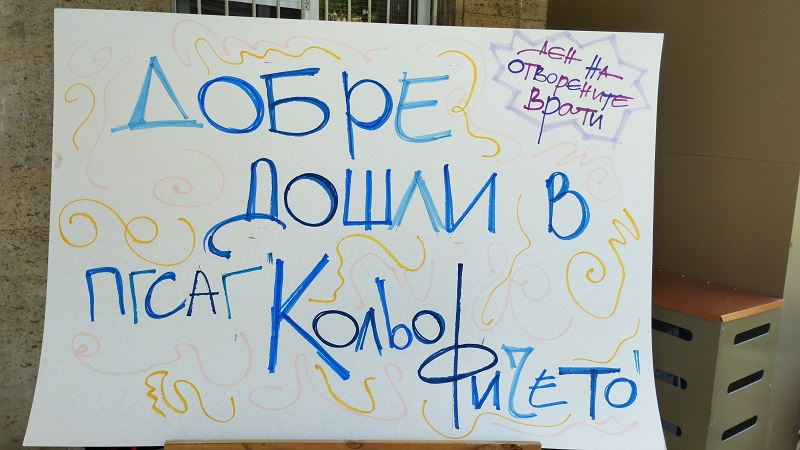 ДОБРЕ
ДЕН НА
ОТВОРЕНИТЕ
ВРАТИ
ДОШЛИ В
ПГСАГ "КОЛЬО
ФИЧЕТО"